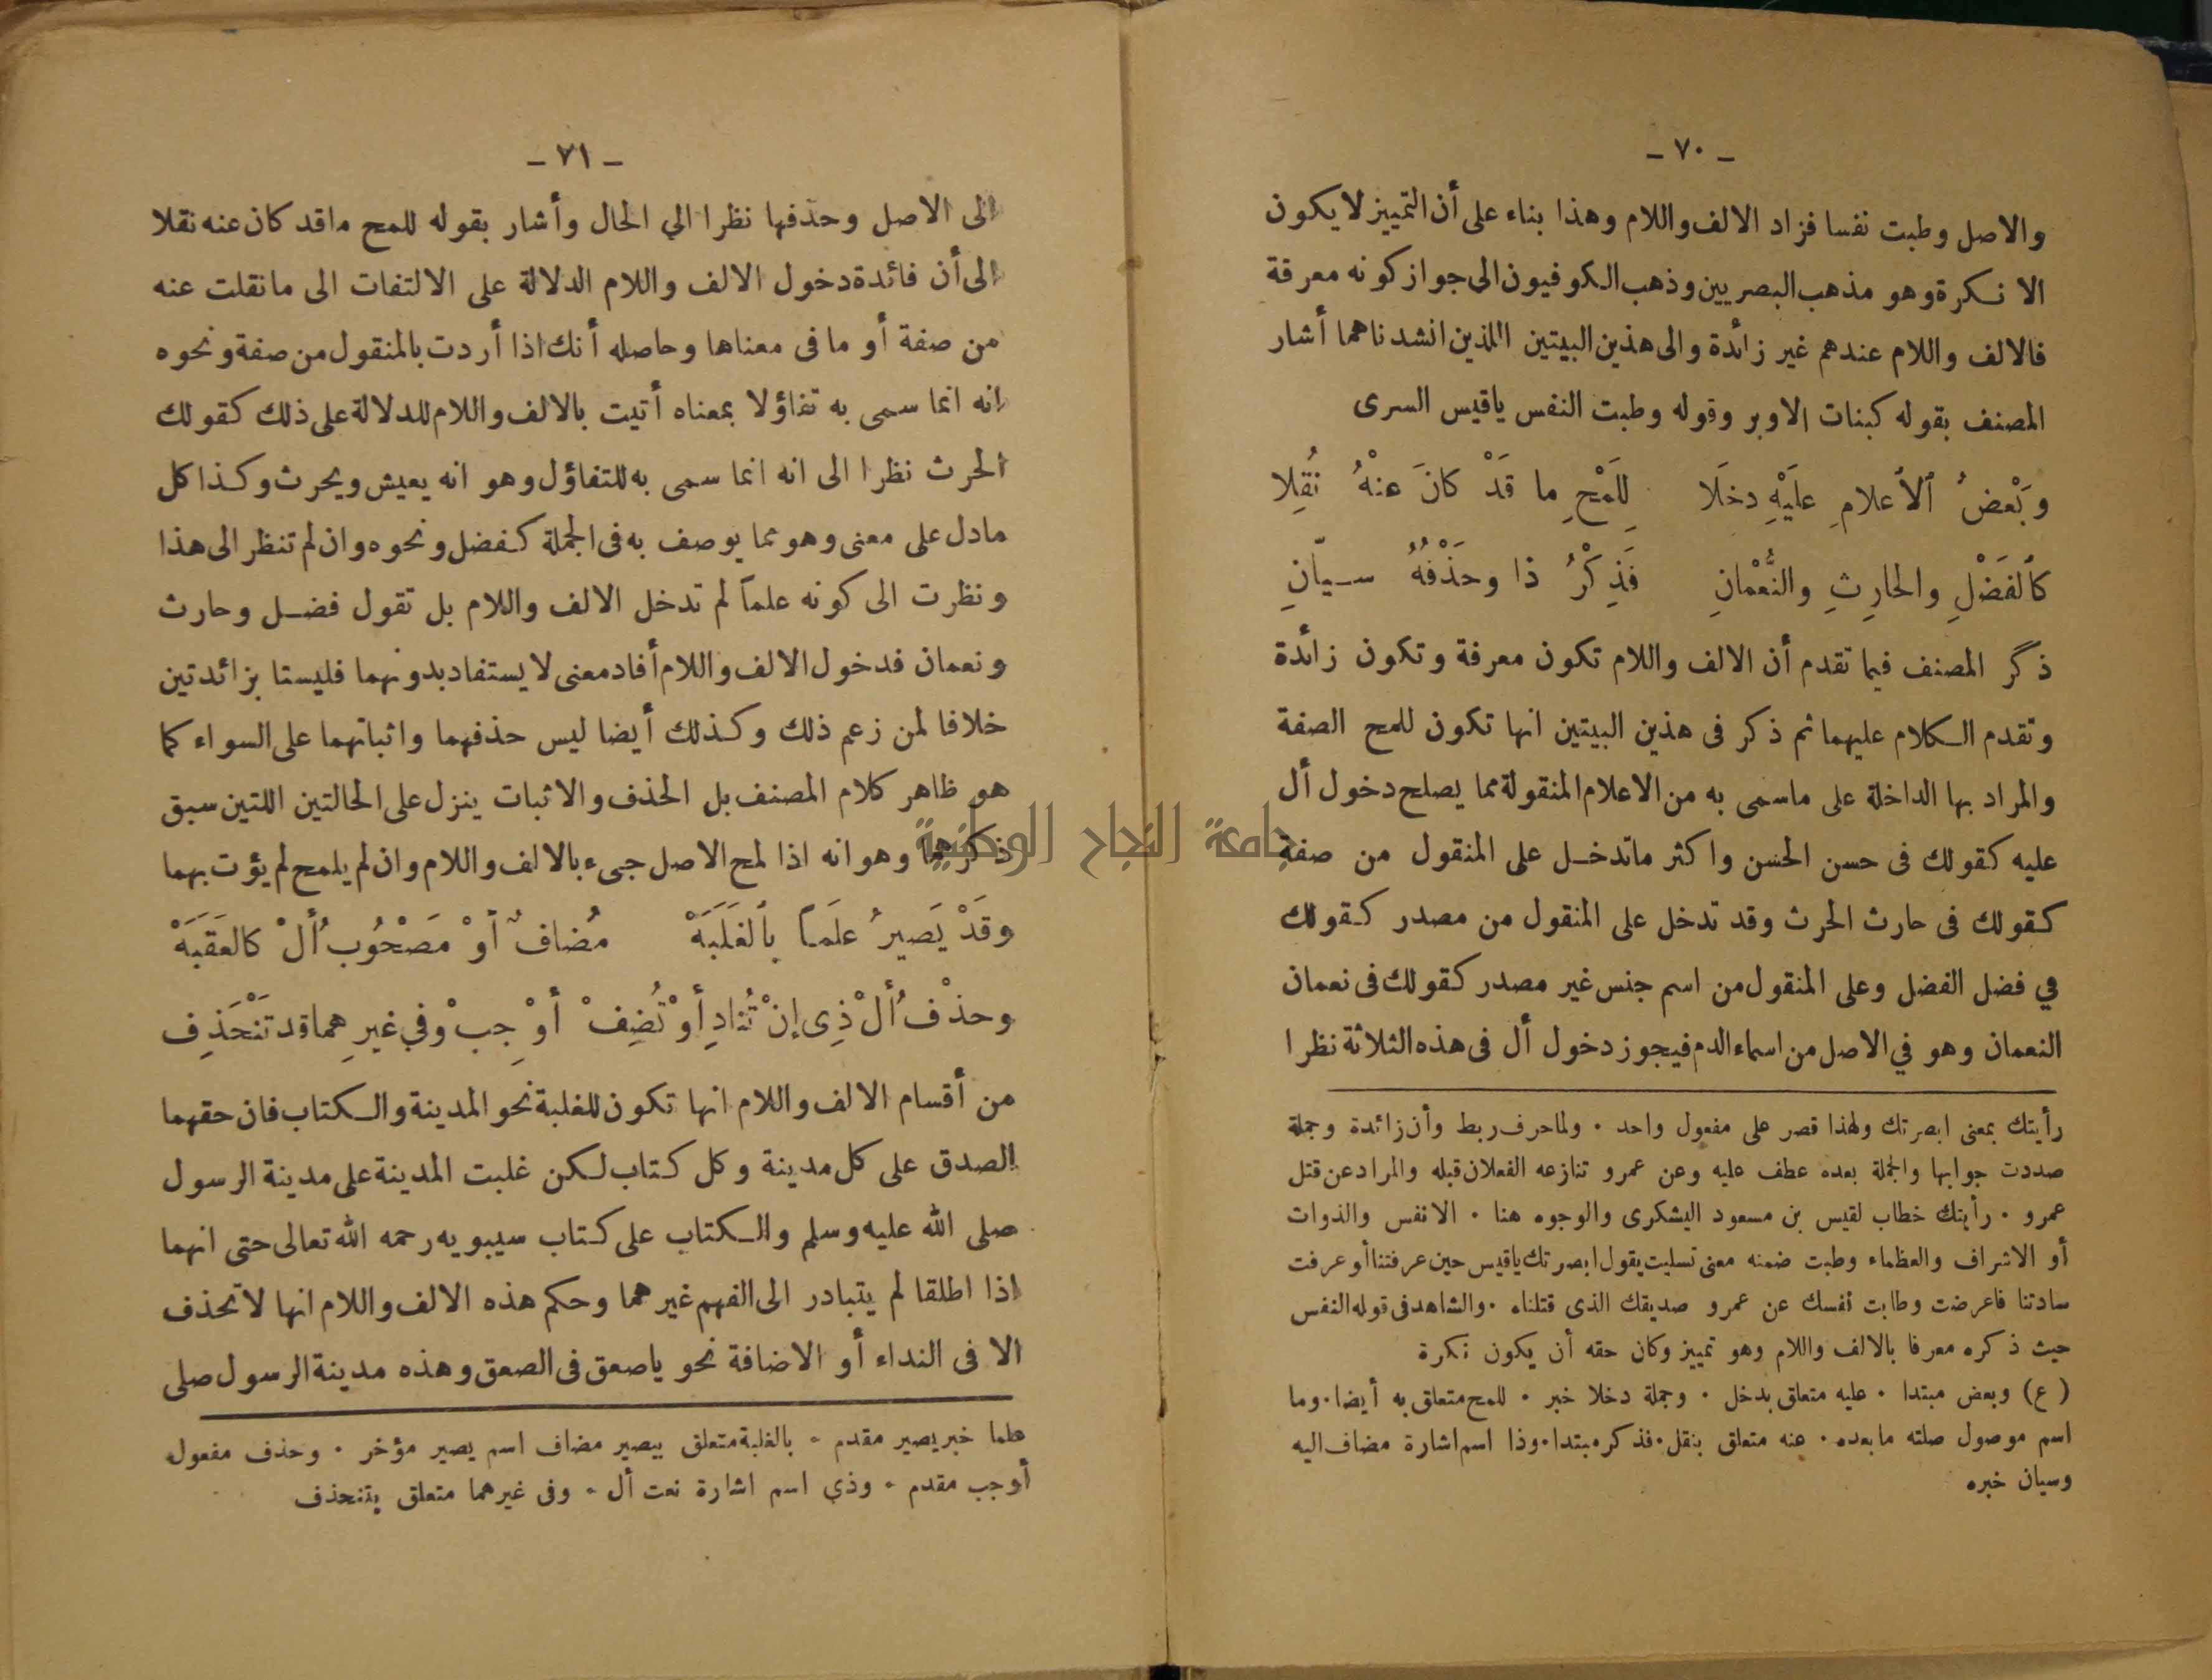 - ٧٠ -
والاصل وطبت نفسا فزاد الالف واللام وهذا بناء على أن التمييز لا يكون
الا نكرة وهو مذهب البصريين وذهب الكوفيون الى جواز كونه معرفة
فالالف واللام عندهم غير زائدة والى هذين البيتين اللذين انشدناهما أشار
المصنف بقوله كبنات الاوبر وقوله وطبت النفس ياقيس السرى
وبَعْضُ ٱلأعلامِ عليْهِ دخلَا لِلَمْحِ ما قَدْ كانَ عنْهُ نُقِلا
كَٱلفَضْلِ والحارِثِ والنُّعْمانِ فَذِكْرُ ذا وحَذْفُهُ سيّانِ
ذكر المصنف فيما تقدم أن الالف واللام تكون معرفة وتكون زائدة
وتقدم الكلام عليهما ثم ذكر فى هذين البيتين انها تكون للمح الصفة
والمراد بها الداخلة على ماسمى به من الاعلام المنقولة مما يصلح دخول أل
عليه كقولك فى حسن الحسن واكثر ماتدخل على المنقول من صفة
كقولك فى حارث الحرث وقد تدخل على المنقول من مصدر كقولك
في فضل الفضل وعلى المنقول من اسم جنس غير مصدر كقولك فى نعمان
النعمان وهو في الاصل من اسماء الدم فيجوز دخول أل فى هذه الثلاثة نظرا
رأيتك بمعنى ابصرتك ولهذا قصر على مفعول واحد . ولماحرف ربط وأن زائدة وجملة
صددت جوابها والجملة بعده عطف عليه وعن عمرو تنازعه الفعلان قبله والمراد عن قتل
عمرو . رأيتك خطاب لقيس بن مسعود اليشكرى والوجوه هنا . الانفس والذوات
أو الاشراف والعظماء وطبت ضمنه معنى تسليت يقول ابصرتك ياقيس حين عرفتنا أو عرفت
سادتنا فاعرضت وطابت نفسك عن عمرو صديقك الذى قتلناه . والشاهد فى قوله النفس
حيث ذكره معرفا بالالف واللام وهو تمييز وكان حقه أن يكون نكرة
(ع) وبعض مبتدا . عليه متعلق بدخل . وجملة دخلا خبر . للمح متعلق به أيضا . وما
اسم موصول صلته مابعده . عنه متعلق بنقل . فذكر مبتدا . وذا اسم اشارة مضاف اليه
وسيان خبره
- ٧١ -
الى الاصل وحذفها نظرا الي الحال وأشار بقوله للمح ماقد كان عنه نقلا
الى أن فائدة دخول الالف واللام الدلالة على الالتفات الى مانقلت عنه
من صفة أو مافى معناها وحاصله أنك اذا أردت بالمنقول من صفة ونحوه
انه انما سمى به تفاؤلا بمعناه أتيت بالالف واللام للدلالة على ذلك كقولك
الحرث نظرا الى انه انما سمى به للتفاؤل وهو انه يعيش ويحرث وكذا كل
مادل على معنى وهو مما يوصف به فى الجملة كفضل ونحوه وان لم تنظر الى هذا
ونظرت الى كونه علماً لم تدخل الالف واللام بل تقول فضل وحارث
ونعمان فدخول الالف واللام أفاد معنى لا يستفاد بدونهما فليستا بزائدتين
خلافا لمن زعم ذلك وكذلك أيضا ليس حذفهما واثباتهما على السواء كما
هو ظاهر كلام المصنف بل الحذف والاثبات ينزل على الحالتين اللتين سبق
ذكرهما وهو انه اذا لمح الاصل جىء بالالف واللام وان لم يلمح لم يؤت بهما
جامعة النجاح الوطنية
وقَدْ يَصيرُ علَماً بٱلغَلَبَهْ مُضافٌ أوْ مَصْحُوبُ أَلْ كالعَقَبَهْ
وحذْفَ أَلْ ذِى إنْ تُنادِ أوْ تُضِفْ أوْجِبْ وفي غيرِهما قد تَنْحَذِف
من أقسام الالف واللام انها تكون للغلبة نحو المدينة والكتاب فان حقهما
الصدق على كل مدينة وكل كتاب لكن غلبت المدينة على مدينة الرسول
صلى الله عليه وسلم والكتاب على كتاب سيبويه رحمه الله تعالى حتى انهما
اذا اطلقا لم يتبادر الى الفهم غيرهما وحكم هذه الالف واللام انها لا تحذف
الا فى النداء أو الاضافة نحو ياصعق فى الصعق وهذه مدينة الرسول صلى
علما خبر يصير مقدم . بالغلبة متعلق بيصير مضاف اسم يصير مؤخر . وحذف مفعول
أوجب مقدم . وذي اسم اشارة نعت أل . وفى غيرهما متعلق بتنحذف